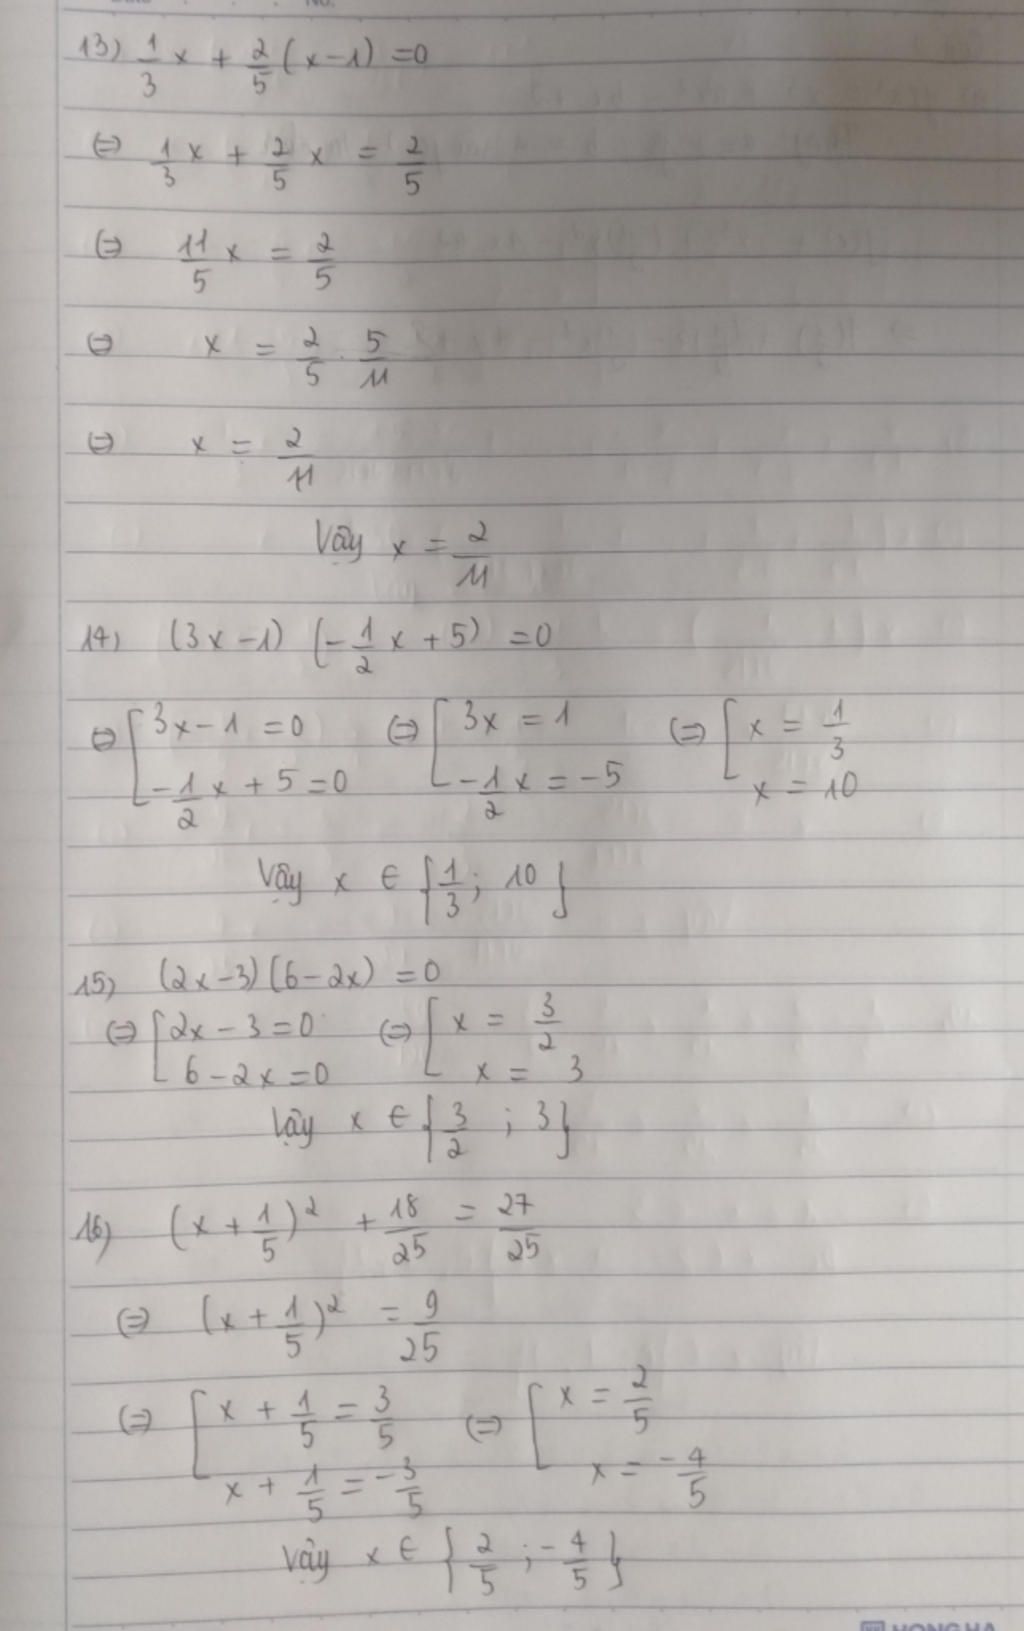 13) 1/3 x + 2/5 (x-1) = 0
⇔ 1/3 x + 2/5 x = 2/5
⇔ 11/5 x = 2/5
⇔ x = 2/5 . 5/11
⇔ x = 2/11
Vậy x = 2/11
14) (3x-1) (-1/2 x + 5) = 0
⇔ [ 3x-1 = 0 ⇔ [ 3x = 1 ⇔ [ x = 1/3
-1/2 x + 5 = 0 -1/2 x = -5 x = 10
Vậy x ∈ {1/3 ; 10}
15) (2x-3)(6-2x) = 0
⇔ [ 2x-3 = 0 ⇔ [ x = 3/2
6-2x = 0 x = 3
Vậy x ∈ {3/2 ; 3}
16) (x + 1/5)² + 18/25 = 27/25
⇔ (x + 1/5)² = 9/25
⇔ [ x + 1/5 = 3/5 ⇔ [ x = 2/5
x + 1/5 = -3/5 x = -4/5
Vậy x ∈ {2/5 ; -4/5}
HONG HA